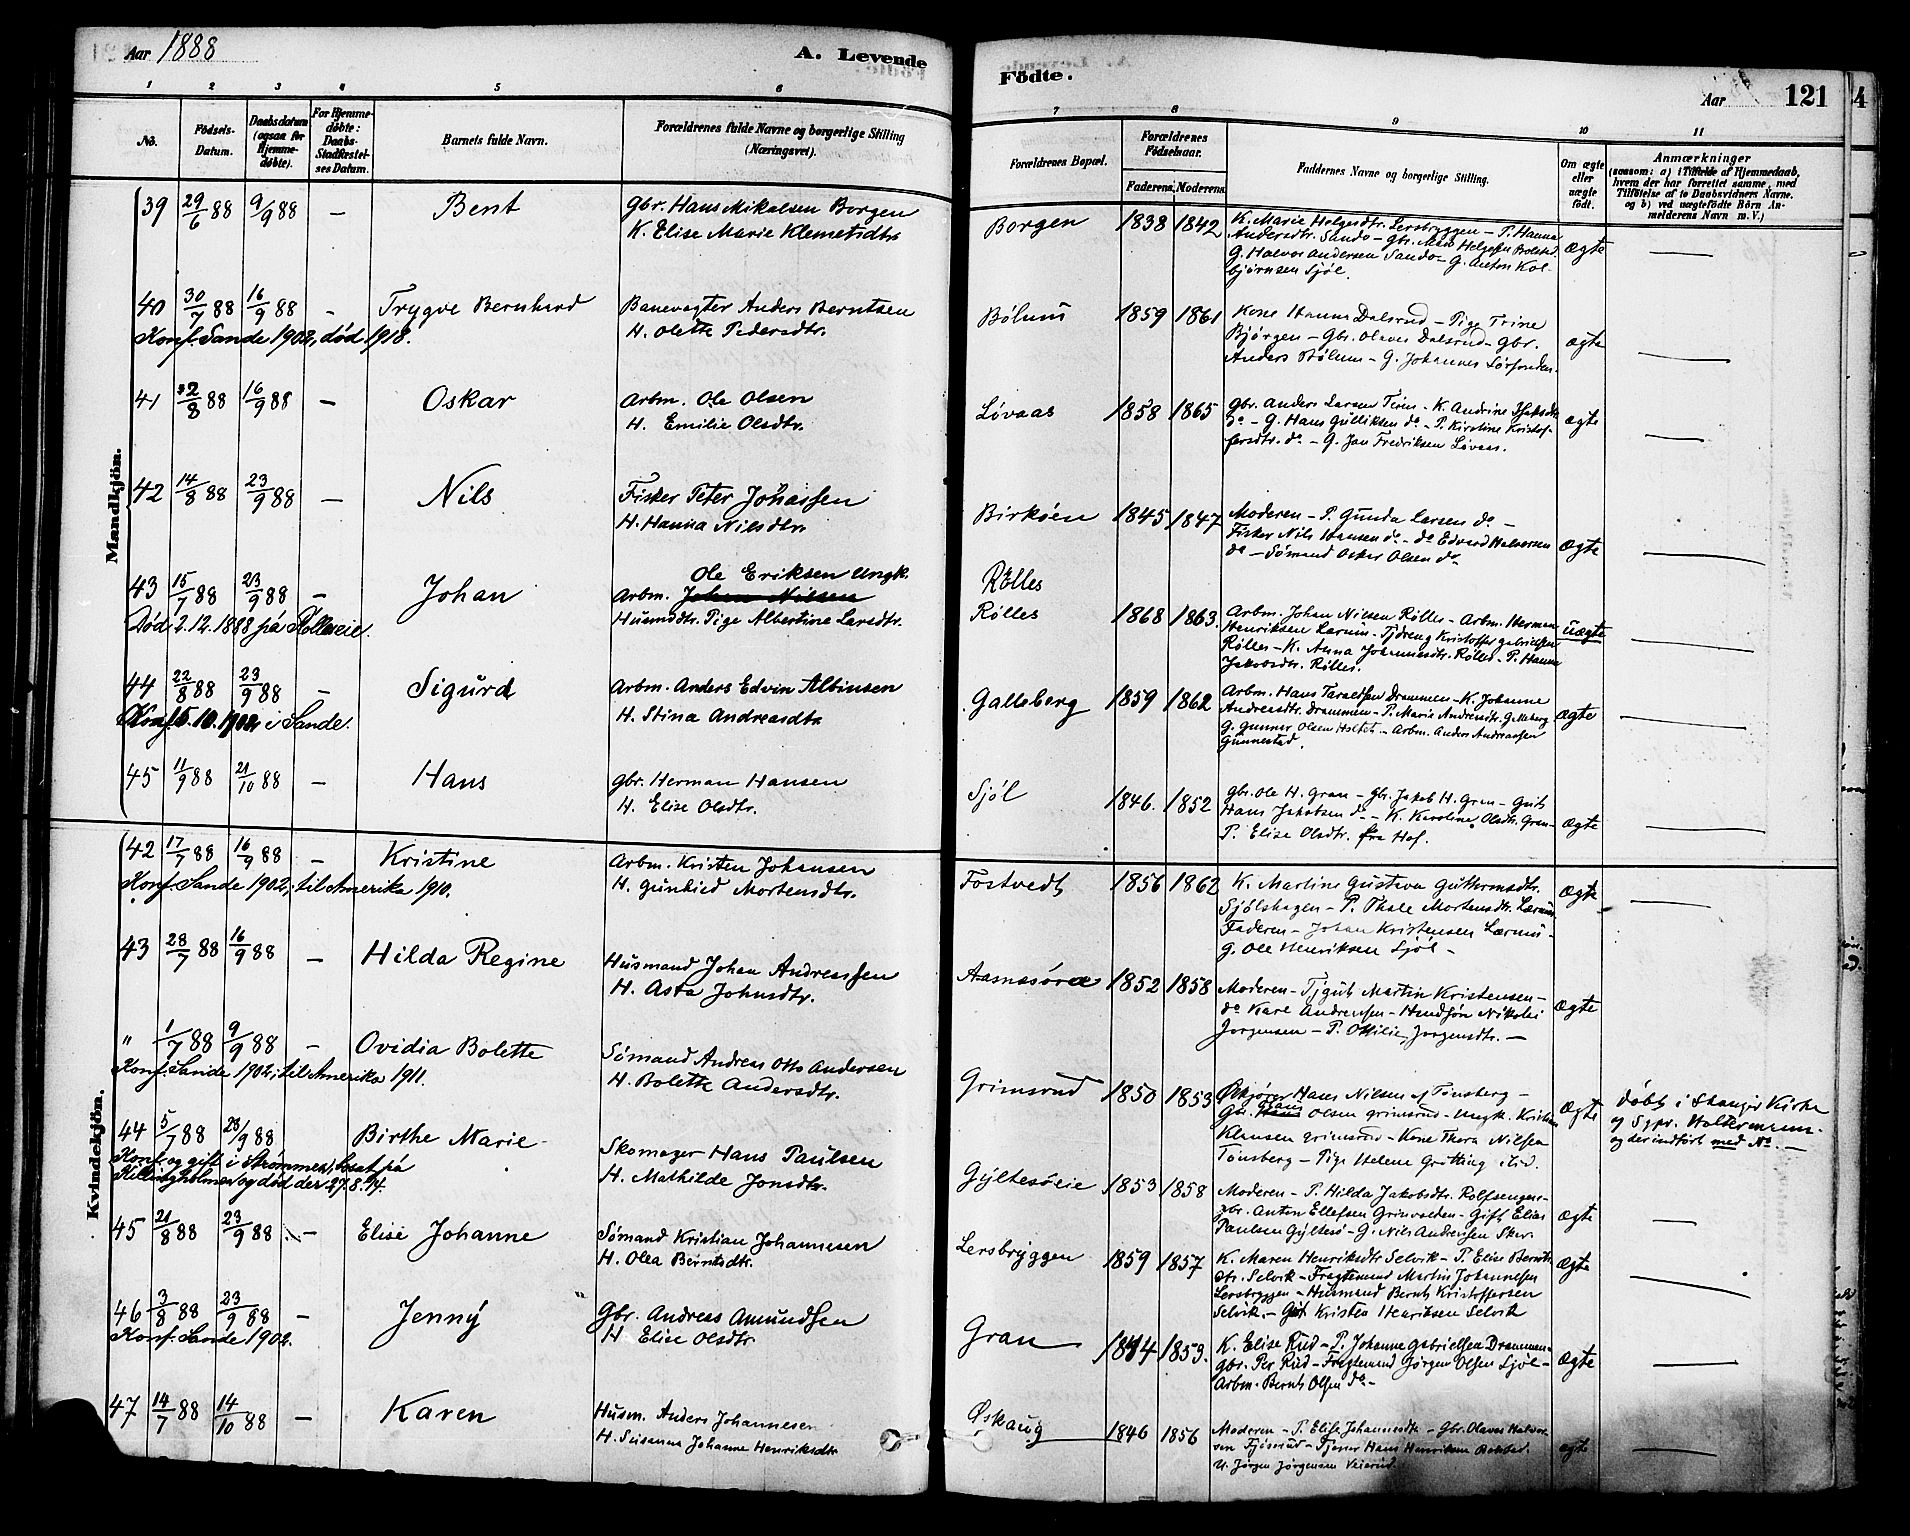 Aar 1888
A. Levende
Födte.
Aar
121
1 2 3 4 5 6 7 8 9 10 11
No.
Födsels-Datum.
Daabsdatum (ogsaa for Hjemmedöbte).
For Hjemmedöbte: Daabs-Stadfæstelses Datum.
Barnets fulde Navn.
Forældrenes fulde Navne og borgerlige Stilling (Næringsvei).
Forældrenes Bopæl.
Forældrenes Födselsaar.
Faderens. Moderens.
Faddernes Navne og borgerlige Stilling.
Om ægte eller uægte födt.
Anmærkninger
(saasom: a) i Tilfælde af Hjemmedaab, hvem der har forrettet samme, med Tilföielse af to Daabsvidners Navne. og b) ved uægtefödte Börn Anmelderens Navn m. V.)
Mandkjön.
39 29/6 88 9/9 88 — Bent
Gbr. Hans Mikalsen Borgen
K. Elise Marie Klemetsdtr.
Borgen 1838 1842
K. Marie Helgesdtr. Lersbryggen - P. Hanna
Andersdtr. Sando - Gbr. Helgesen Bolstad.
G. Halvor Andersen Sando - G. Anton Kol-
bjørnsen Sjøl.
Ægte —
40 30/7 88 16/9 88 - Trygve Bernhard
Banevagter Anders Berntsen
H. Olette Pedersdtr.
Konf. Sande 1902, død 1918.
Bølum 1859 1861
Kone Hanna Dalsrud - Pige Trine
Bjørgen - Gbr. Olaves Dalsrud - Gbr.
Anders Bølum - G. Johannes
Ægte —
41 2/8 88 16/9 88 — Oskar
Arbm. Ole Olsen
H. Emilie Olsdtr.
Løvaas 1858 1865
Gbr. Anders Larsen - K. Andrine
Do - G. Hans Gulliksen do - P. Kirstine Kristof-
fersdtr. do - G. Jan Fredriksen Løvaas.
Ægte —
42 14/8 88 23/9 88 — Nils
Fisker Peter Johassen
H. Hanna Nilsdtr.
Birkøen 1845 1847
Moderen - P. Gunda Larsen do -
Fisker Nils Hansen do - do Edvard Halvorsen
do - Sømand Oskar Olsen do
Ægte —
43 15/7 88 23/9 88 — Johan
Ole Eriksen Ungk.
Arbm. Johan Nilsen
Husmdtr. Pige Albertine Larsdtr.
Død 2.12.1888 på
Rølles
Rølles 1868 1863.
Arbm. Johan Nilsen Rølles - Arbm. Herman
Henriksen Lærum - Tjdreng Kristoffer Gabrielsen
Rølles - K. Anna Johannesdtr. Rølles - P. Hanna
Jakobsdtr. Rølles.
Uægte —
44 22/8 88 23/9 88 — Sigurd
Arbm. Anders Edvin Albinsen
H. Stina Andreasdtr.
Konf. 5.10.1902 i Sande.
Galleberg 1859 1862
Arbm. Hans Taraldsen Drammen - K. Johanne
Andreasdtr. Drammen - P. Marie Andreasdtr. Galleberg
G. Gunner Olsen Holtet - Arbm. Anders Andreassen
Gunnestad.
Ægte —
45 11/9 88 21/10 88 — Hans
Gbr. Herman Hansen
H. Elise Olsdtr.
Sjøl 1846. 1852
Gbr. Ole H. Gran - Gbr. Jakob H. Gran - Gut
Hans Jakobsen do - K. Karoline Olsdtr. Gran -
P. Elise Olsdtr. fra Hof.
Ægte —
Kvindekjön.
42 17/7 88 16/9 88 — Kristine
Arbm. Kristen Johansen
H. Gunhild Mortensdtr.
Konf. Sande 1902, til Amerika 1910.
Tostvedt 1856 1862
K. Martine Gustava Guttormsdtr.
Sjølshagen - P. Thale Mortensdtr. Lærum
Faderen - Johan Kristensen Lærum -
G. Ole Henriksen Sjøl -
Ægte —
43 28/7 88 16/9 88 — Hilda Regine
Husmand Johan Andreassen
H. Asta Johnsdtr.
Aasnæsøra 1852 1858
Moderen - Tjgut Martin Kristensen -
do Karl Andreassen - Nikolai
Jorgensen - P. Ottilie Jorgensdtr. —
Ægte
" 1/7 88 9/9 88 - Ovidia Bolette
Sømand Andreas Otto Andersen
H. Bolette Andersdtr.
Konf. Sande 1902; til Amerika 1911.
Grimsrud 1850 1853
Hans Nilsen af Tønsberg -
Gbr. Hans Olsen Grimsrud - Ungk. Kristian
Klausen Grimsrud - Kone Thora Nilsen
Tønsberg - Pige Helene Grøtting
Ægte
Døbt i Kirke
og
og der indført med No. —
44 5/7 88 28/9 88 Birthe Marie
Skomager Hans Paulsen
H. Mathilde Jonsdtr.
Konf. og gift i Strømmen, bosat på
Killingholmen og død der 27.8.14.
Gyltesøeie 1853 1858
Moderen - P. Hilda Jakobsdtr. Rolfsengen -
Gbr. Anton Ellefsen - Gift Elias
Paulsen Gyltesø - G. Nils Andreasen
Ægte —
45 21/8 88 23/9 88 — Elise Johanne
Sømand Kristian Johannesen
H. Olea Berntsdtr.
Lersbryggen 1859 1857
K. Maren Henriksdtr. Selvik - P. Elise Bernts-
dtr. Selvik - Fragtemand Martin Johannesen
Lersbryggen - Husmand Bernt Kristoffersen
Selvik. - Gut Kristen Henriksen Selvik
Ægte —
46 3/8 88 23/9 88 — Jenny
Gbr. Andreas Amundsen
H. Elise Olsdtr.
Konf. Sande 1902.
Gran 1853.
K. Elise Rud - P. Johanne Gabrielsen Drammen -
Gbr. Per Rud - Fragtemand Jørgen Olsen Sjøl -
Arbm. Bernt Olsen do -
Ægte —
47 14/7 88 14/10 88 — Karen
Husm. Anders Johannesen
H. Susanna Johanne Henriksdtr.
Øskaug 1846 1856
Moderen - P. Elise Johannesdtr. - Gbr. Olaves Halvor-
sen - Tjener Hans Henriksen Bolstad.
U. Jørgen Jørgensen Veierud.
Ægte —